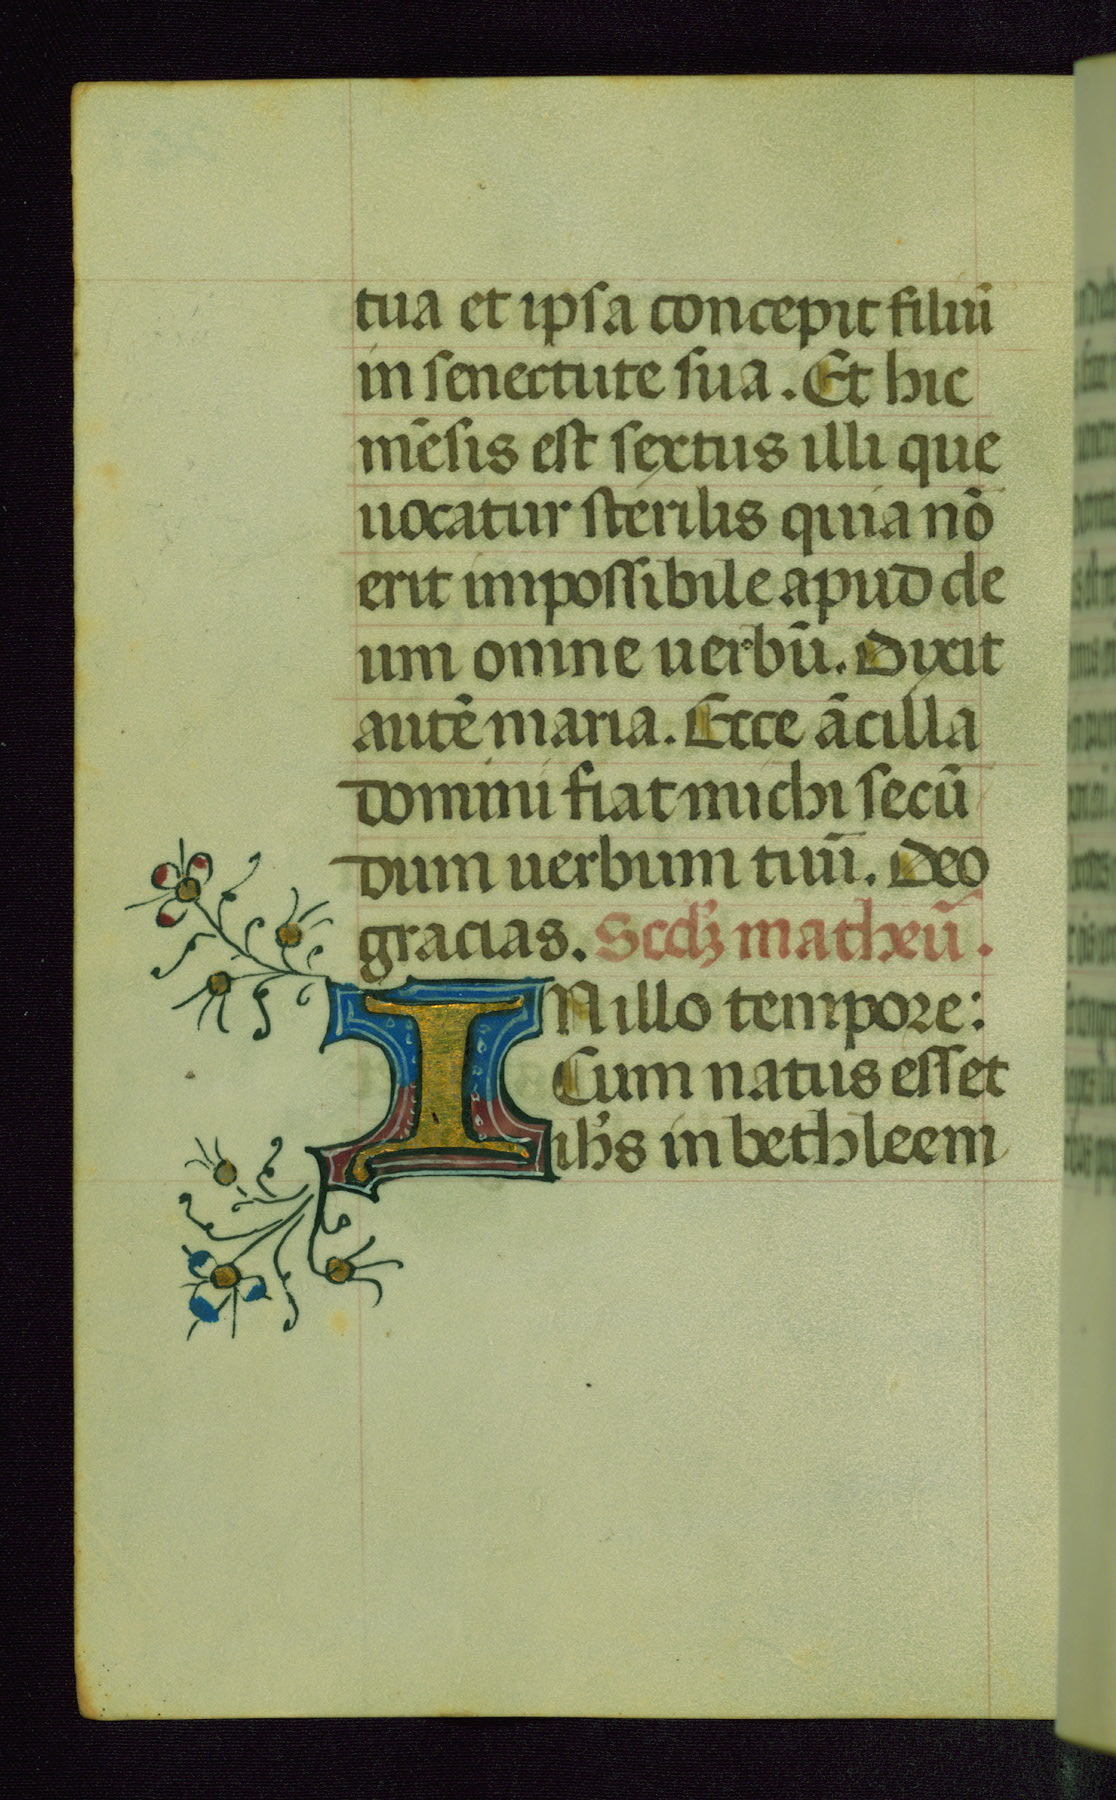 tua et ipsa concepit filiū
in senectute sua. Et hic
mēsis est sextus illi que
uocatur sterilis quia nō
erit impossibile apud de
um omne uerbū. Dixit
autē maria. Ecce ācilla
domini fiat michi secū
dum uerbum tuū. Deo
gracias. Scdꝫ matheū.
IN illo tempore:
Cum natus esset
ih̄s in bethleem